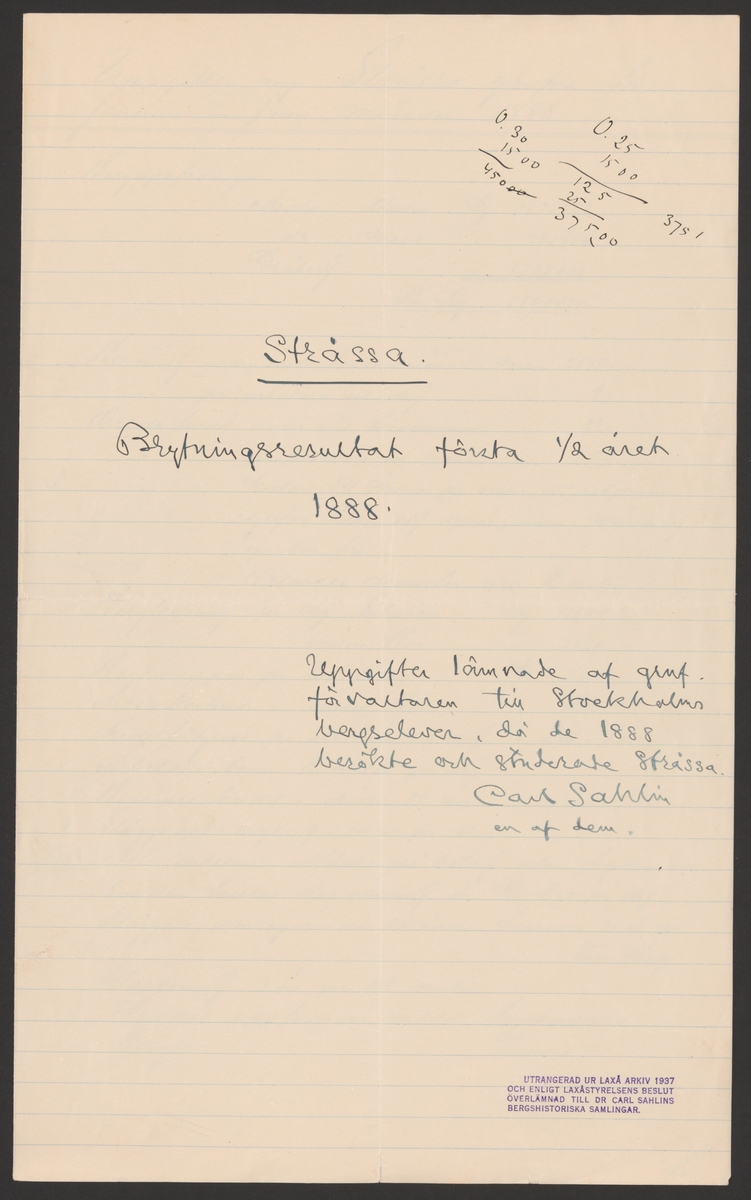 0.30
1500
45000
0.25
1500
125
25
375,00
375,
Stråssa.
Brytningsresultat första 1/2 året
1888.
Uppgifter lämnade af gruf-
förvaltaren till Stockholms
bergselever, då de 1888
besökte och studerade Stråssa.
Carl Sahlin
en af dem.
UTRANGERAD UR LAXÅ ARKIV 1937
OCH ENLIGT LAXÅSTYRELSENS BESLUT
ÖVERLÄMNAD TILL DR CARL SAHLINS
BERGSHISTORISKA SAMLINGAR.